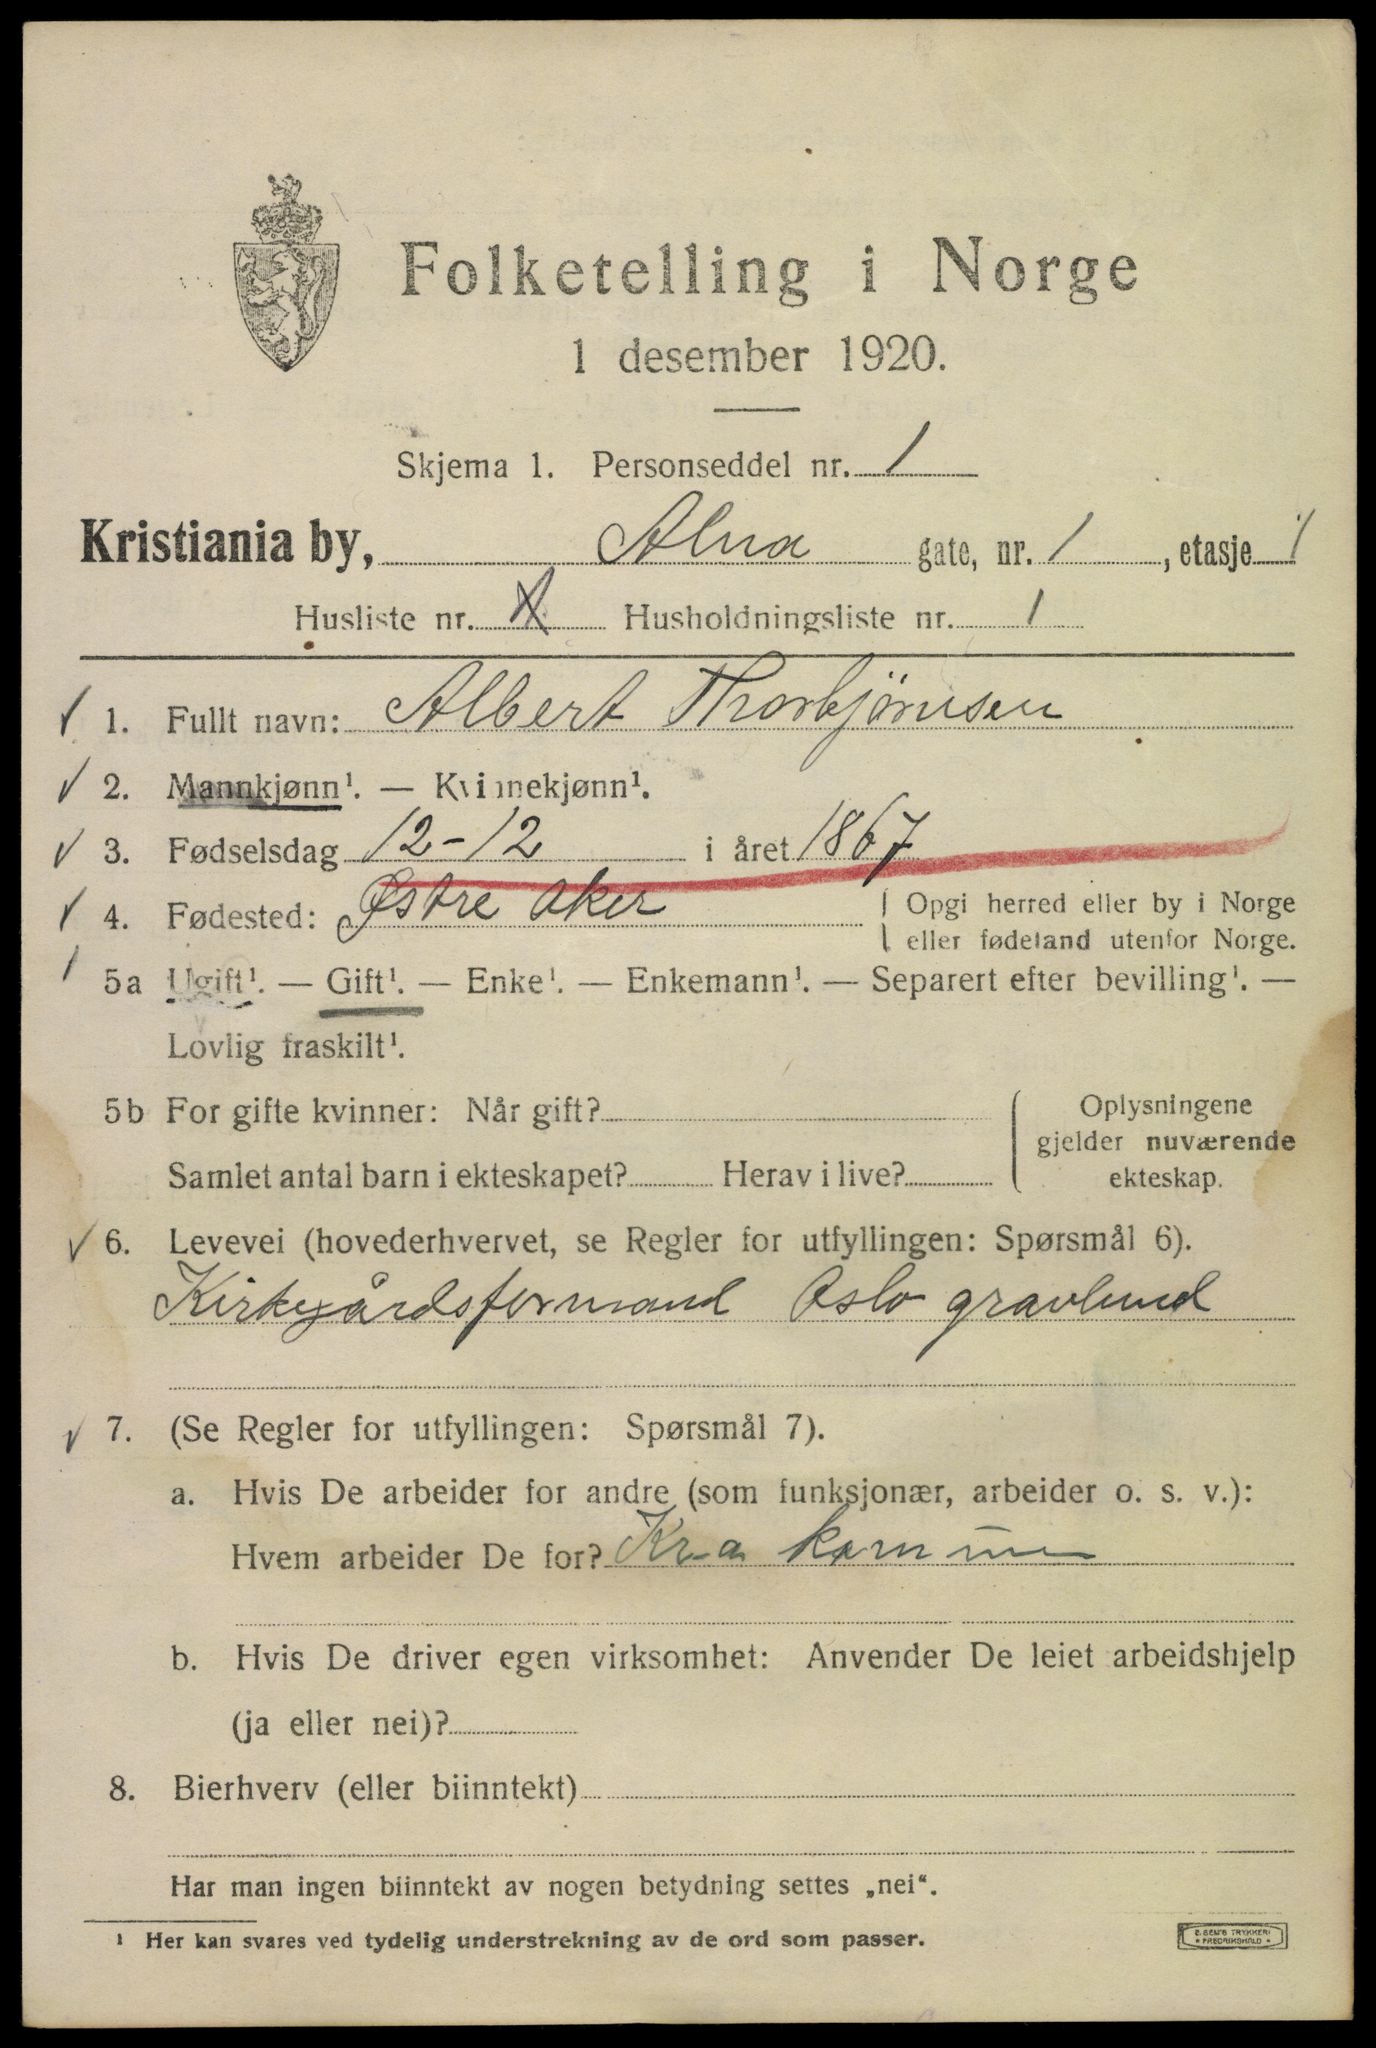 Folketelling i Norge
1 desember 1920.
Skjema 1. Personseddel nr. 1
Kristiania by, Alna gate, nr. 1, etasje 1
Husliste nr. Husholdningsliste nr. 1
1. Fullt navn: Albert Thorbjørnsen
2. Mannkjønn¹. — Kvinnekjønn¹.
3. Fødselsdag 12-12 i året 1867
4. Fødested: Østre Aker
Opgi herred eller by i Norge
eller fødeland utenfor Norge.
5a Ugift¹. — Gift¹. — Enke¹. — Enkemann¹. — Separert efter bevilling¹. —
Lovlig fraskilt¹.
5b For gifte kvinner: Når gift?
Samlet antal barn i ekteskapet? Herav i live?
Oplysningene
gjelder nuværende
ekteskap.
6. Levevei (hovederhvervet, se Regler for utfyllingen: Spørsmål 6).
Kirkegårdsformand Oslo gravlund
7. (Se Regler for utfyllingen: Spørsmål 7).
a. Hvis De arbeider for andre (som funksjonær, arbeider o. s. v.):
Hvem arbeider De for? Kr.a kommune
b. Hvis De driver egen virksomhet: Anvender De leiet arbeidshjelp
(ja eller nei)?
8. Bierhverv (eller biinntekt)
Har man ingen biinntekt av nogen betydning settes „nei“.
¹ Her kan svares ved tydelig understrekning av de ord som passer.
E. SEM'S TRYKKERI
FREDRIKSHALD